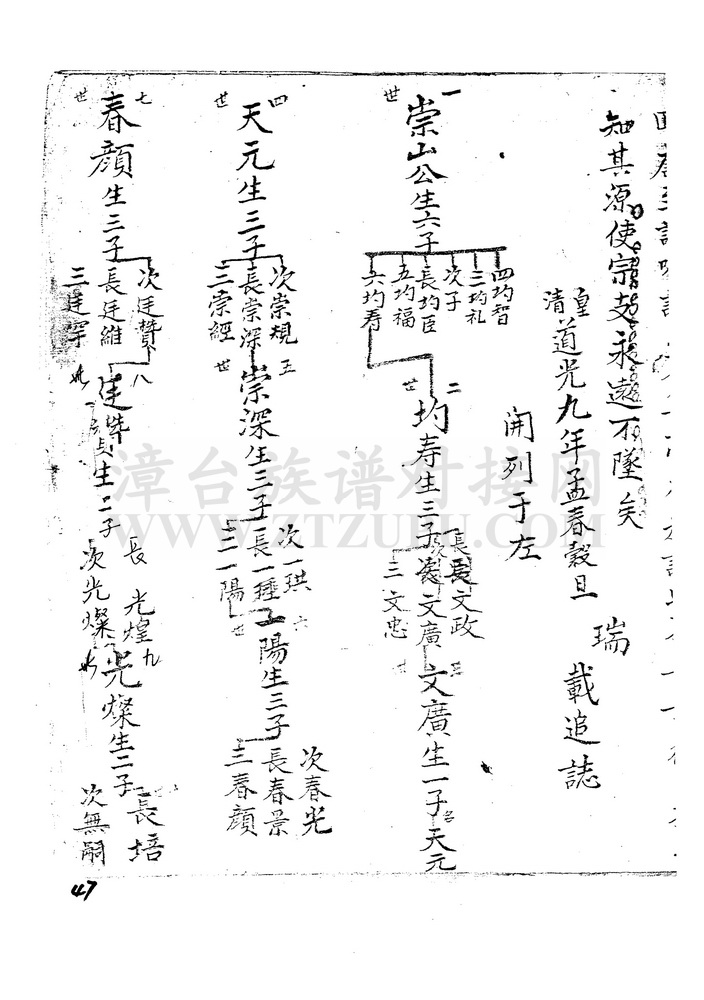 知其源使宗支永遠不墜矣
皇清
道光九年孟春穀旦
瑞
載追誌
開列于左
一世
崇山公生六子
四圴智
三圴礼
次子
長圴臣
五圴福
六圴寿
二世
圴寿生三子
長文政
次文廣
三文忠
三世
文廣生一子
名天元
四世
天元生三子
次崇規
長崇深
三崇經
五世
崇深生三子
次一珙
長一種
三一陽
六世
一陽生三子
次春光
長春景
三春顔
七世
春顔生三子
次廷贊
長廷維
八世
生二子
長光煌
次光燦
九世
光燦生二子
長培
次無嗣
漳台族谱对接网
WWW.ZTZUPU.COM
47